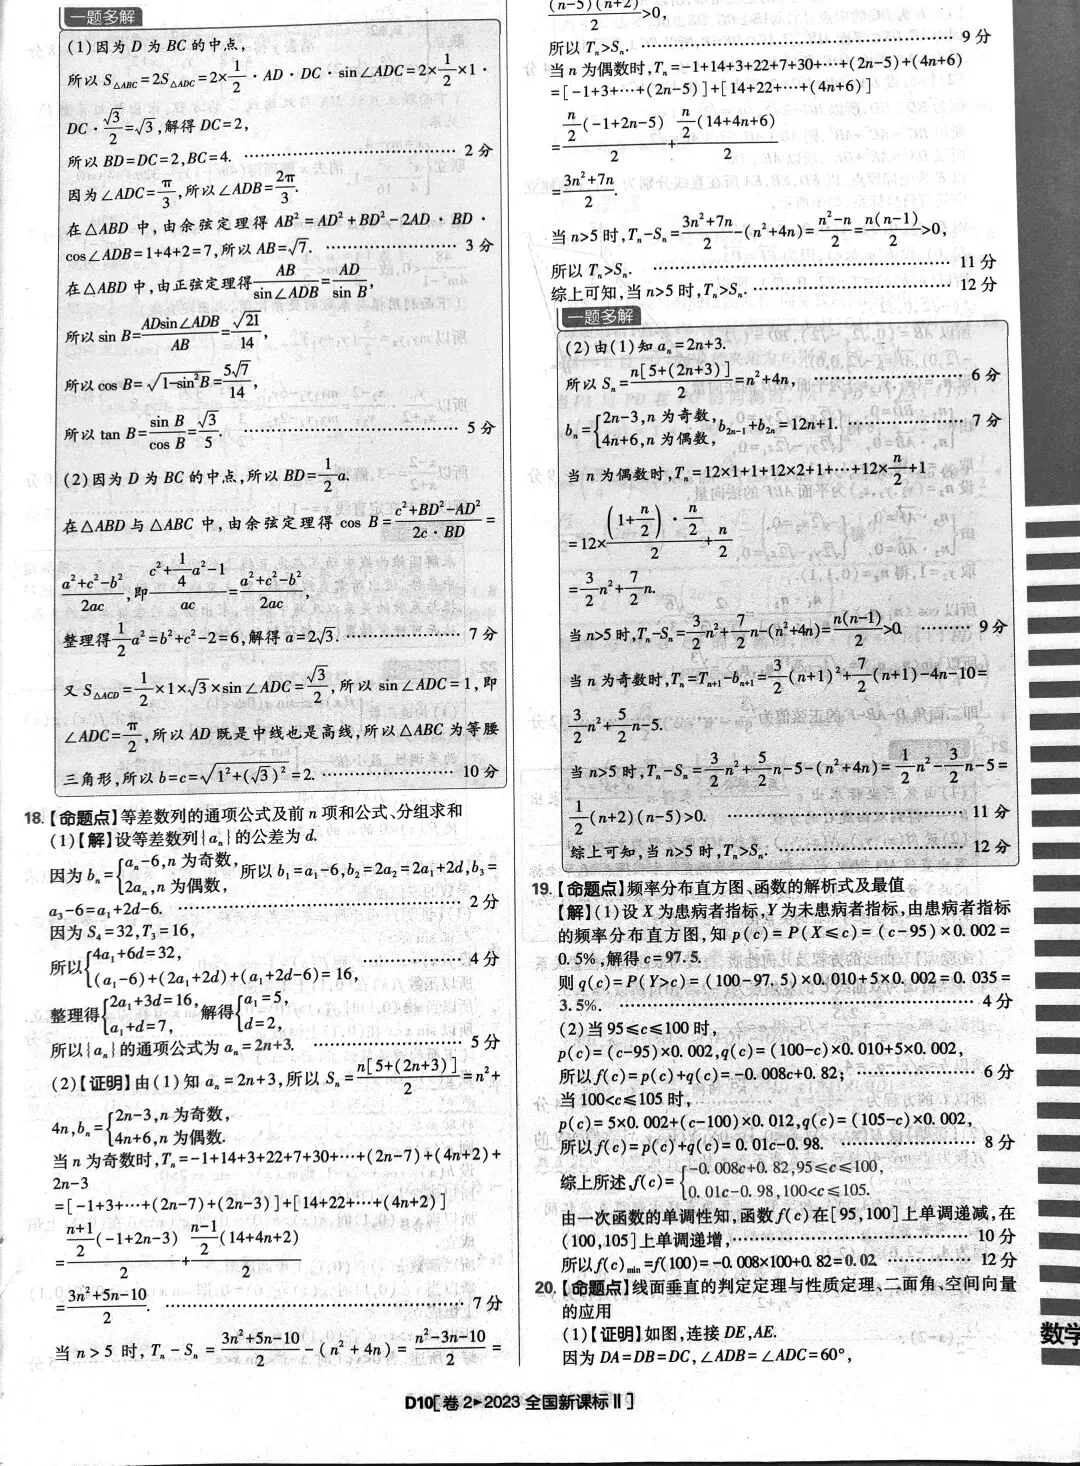 一题多解
(1)因为 D 为 BC 的中点,
所以 S△ABC=2S△ADC=2×1/2·AD·DC·sin∠ADC=2×1/2×1·
DC·√3/2=√3,解得 DC=2,
所以 BD=DC=2,BC=4. ………… 2分
因为∠ADC=π/3,所以∠ADB=2π/3.
在△ABD 中,由余弦定理得 AB²=AD²+BD²-2AD·BD·
cos∠ADB=1+4+2=7,所以 AB=√7. ………… 3分
在△ABD 中,由正弦定理得 AB/sin∠ADB=AD/sin B,
所以 sin B=ADsin∠ADB/AB=√21/14,
所以 cos B=√(1-sin²B)=5√7/14,
所以 tan B=sin B/cos B=√3/5. ………… 5分
(2)因为 D 为 BC 的中点,所以 BD=1/2 a.
在△ABD 与△ABC 中,由余弦定理得 cos B=(c²+BD²-AD²)/(2c·BD)=
(a²+c²-b²)/2ac,即(c²+1/4 a²-1)/ac=(a²+c²-b²)/2ac,
整理得 1/2 a²=b²+c²-2=6,解得 a=2√3. ………… 7分
又 S△ACD=1/2×1×√3×sin∠ADC=√3/2,所以 sin∠ADC=1,即
∠ADC=π/2,所以 AD 既是中线也是高线,所以△ABC 为等腰
三角形,所以 b=c=√(1²+(√3)²)=2. ………… 10分
18.【命题点】等差数列的通项公式及前 n 项和公式、分组求和
(1)【解】设等差数列{aₙ}的公差为 d.
因为 bₙ={aₙ-6,n 为奇数, 2aₙ,n 为偶数, 所以 b₁=a₁-6,b₂=2a₂=2a₁+2d,b₃=
a₃-6=a₁+2d-6. ………… 2分
因为 S₄=32,T₃=16,
所以{4a₁+6d=32, (a₁-6)+(2a₁+2d)+(a₁+2d-6)=16, ………… 4分
整理得{2a₁+3d=16, a₁+d=7, 解得{a₁=5, d=2,
所以{aₙ}的通项公式为 aₙ=2n+3. ………… 5分
(2)【证明】由(1)知 aₙ=2n+3,所以 Sₙ=n[5+(2n+3)]/2=n²+
4n,bₙ={2n-3,n 为奇数, 4n+6,n 为偶数.
当 n 为奇数时,Tₙ=-1+14+3+22+7+30+…+(2n-7)+(4n+2)+
2n-3
=[-1+3+…+(2n-7)+(2n-3)]+[14+22+…+(4n+2)]
=((n+1)/2 (-1+2n-3))/2+((n-1)/2 (14+4n+2))/2
=(3n²+5n-10)/2. ………… 7分
当 n>5 时,Tₙ-Sₙ=(3n²+5n-10)/2-(n²+4n)=(n²-3n-10)/2=
(n-5)(n+2)/2>0,
所以 Tₙ>Sₙ. ………… 9分
当 n 为偶数时,Tₙ=-1+14+3+22+7+30+…+(2n-5)+(4n+6)
=[-1+3+…+(2n-5)]+[14+22+…+(4n+6)]
=(n/2 (-1+2n-5))/2+(n/2 (14+4n+6))/2
=(3n²+7n)/2.
当 n>5 时,Tₙ-Sₙ=(3n²+7n)/2-(n²+4n)=(n²-n)/2=n(n-1)/2>0,
所以 Tₙ>Sₙ. ………… 11分
综上可知,当 n>5 时,Tₙ>Sₙ. ………… 12分
一题多解
(2)由(1)知 aₙ=2n+3.
所以 Sₙ=n[5+(2n+3)]/2=n²+4n, ………… 6分
bₙ={2n-3,n 为奇数, 4n+6,n 为偶数, b₂ₙ₋₁+b₂ₙ=12n+1. ………… 7分
当 n 为偶数时,Tₙ=12×1+1+12×2+1+…+12×n/2+1
=12×((1+n/2)·n/2)/2+n/2
=3/2 n²+7/2 n.
当 n>5 时,Tₙ-Sₙ=3/2 n²+7/2 n-(n²+4n)=n(n-1)/2>0. ………… 9分
当 n 为奇数时,Tₙ=Tₙ₊₁-bₙ₊₁=3/2 (n+1)²+7/2 (n+1)-4n-10=
3/2 n²+5/2 n-5.
当 n>5 时,Tₙ-Sₙ=3/2 n²+5/2 n-5-(n²+4n)=1/2 n²-3/2 n-5=
1/2 (n+2)(n-5)>0. ………… 11分
综上可知,当 n>5 时,Tₙ>Sₙ. ………… 12分
19.【命题点】频率分布直方图、函数的解析式及最值
【解】(1)设 X 为患病者指标,Y 为未患病者指标,由患病者指标
的频率分布直方图,知 p(c)=P(X≤c)=(c-95)×0.002=
0.5%,解得 c=97.5.
则 q(c)=P(Y>c)=(100-97.5)×0.010+5×0.002=0.035=
3.5%. ………… 4分
(2)当 95≤c≤100 时,
p(c)=(c-95)×0.002,q(c)=(100-c)×0.010+5×0.002,
所以 f(c)=p(c)+q(c)=-0.008c+0.82; ………… 6分
当 100<c≤105 时,
p(c)=5×0.002+(c-100)×0.012,q(c)=(105-c)×0.002,
所以 f(c)=p(c)+q(c)=0.01c-0.98. ………… 8分
综上所述,f(c)={-0.008c+0.82,95≤c≤100, 0.01c-0.98,100<c≤105.
由一次函数的单调性知,函数 f(c)在[95,100]上单调递减,在
(100,105]上单调递增, ………… 10分
所以 f(c)min=f(100)=-0.008×100+0.82=0.02. ………… 12分
20.【命题点】线面垂直的判定定理与性质定理、二面角、空间向量
的应用
(1)【证明】如图,连接 DE,AE.
因为 DA=DB=DC,∠ADB=∠ADC=60°,
数学
D10[卷 2▶2023 全国新课标Ⅱ]